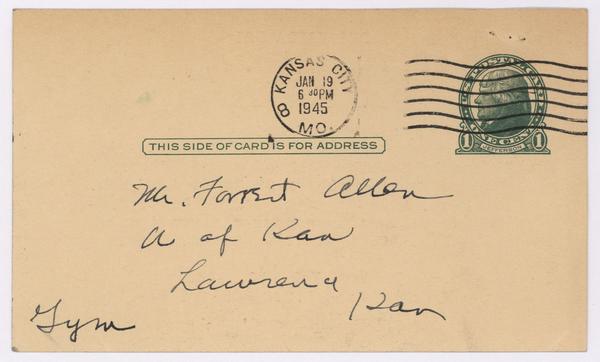 KANSAS CITY
8
JAN 19
6 30 PM
1945
MO.
1 JEFFERSON 1
THIS SIDE OF CARD IS FOR ADDRESS
Mr. Forrest Allen
U of Kan
Lawrence
Kan
Gym